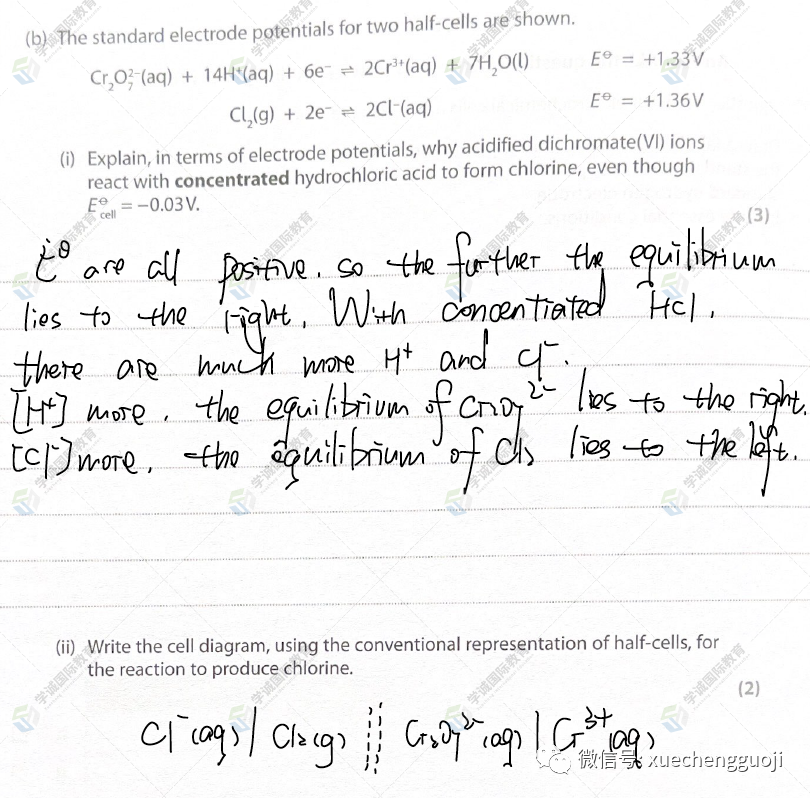 (b) The standard electrode potentials for two half-cells are shown.
Cr₂O₇²⁻(aq) + 14H⁺(aq) + 6e⁻ ⇌ 2Cr³⁺(aq) + 7H₂O(l) E⦵ = +1.33V
Cl₂(g) + 2e⁻ ⇌ 2Cl⁻(aq) E⦵ = +1.36V
(i) Explain, in terms of electrode potentials, why acidified dichromate(VI) ions
react with concentrated hydrochloric acid to form chlorine, even though
E⦵cell = −0.03V.
(3)
E⦵ are all positive. so the further the equilibrium
lies to the right. With concentrated HCl,
there are much more H⁺ and Cl⁻.
[H⁺] more, the equilibrium of Cr₂O₇²⁻ lies to the right.
[Cl⁻] more, the equilibrium of Cl₂ lies to the left.
(ii) Write the cell diagram, using the conventional representation of half-cells, for
the reaction to produce chlorine.
(2)
Cl⁻(aq) | Cl₂(g) ¦¦ Cr₂O₇²⁻(aq) | Cr³⁺(aq)
微信号: xuechengguoji
学诚国际教育